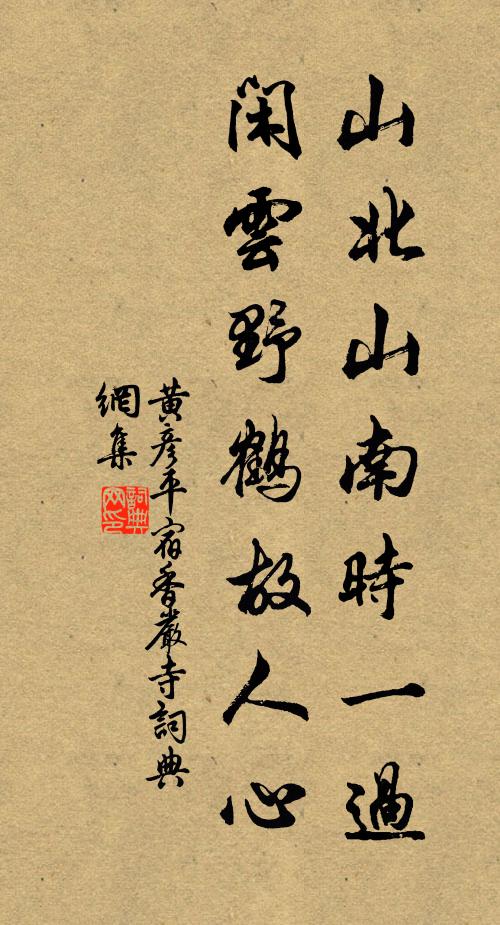 山北山南時一過
閑雲野鶴故人心
黃彥平宿香嚴寺詞典
網集
詞典
網印